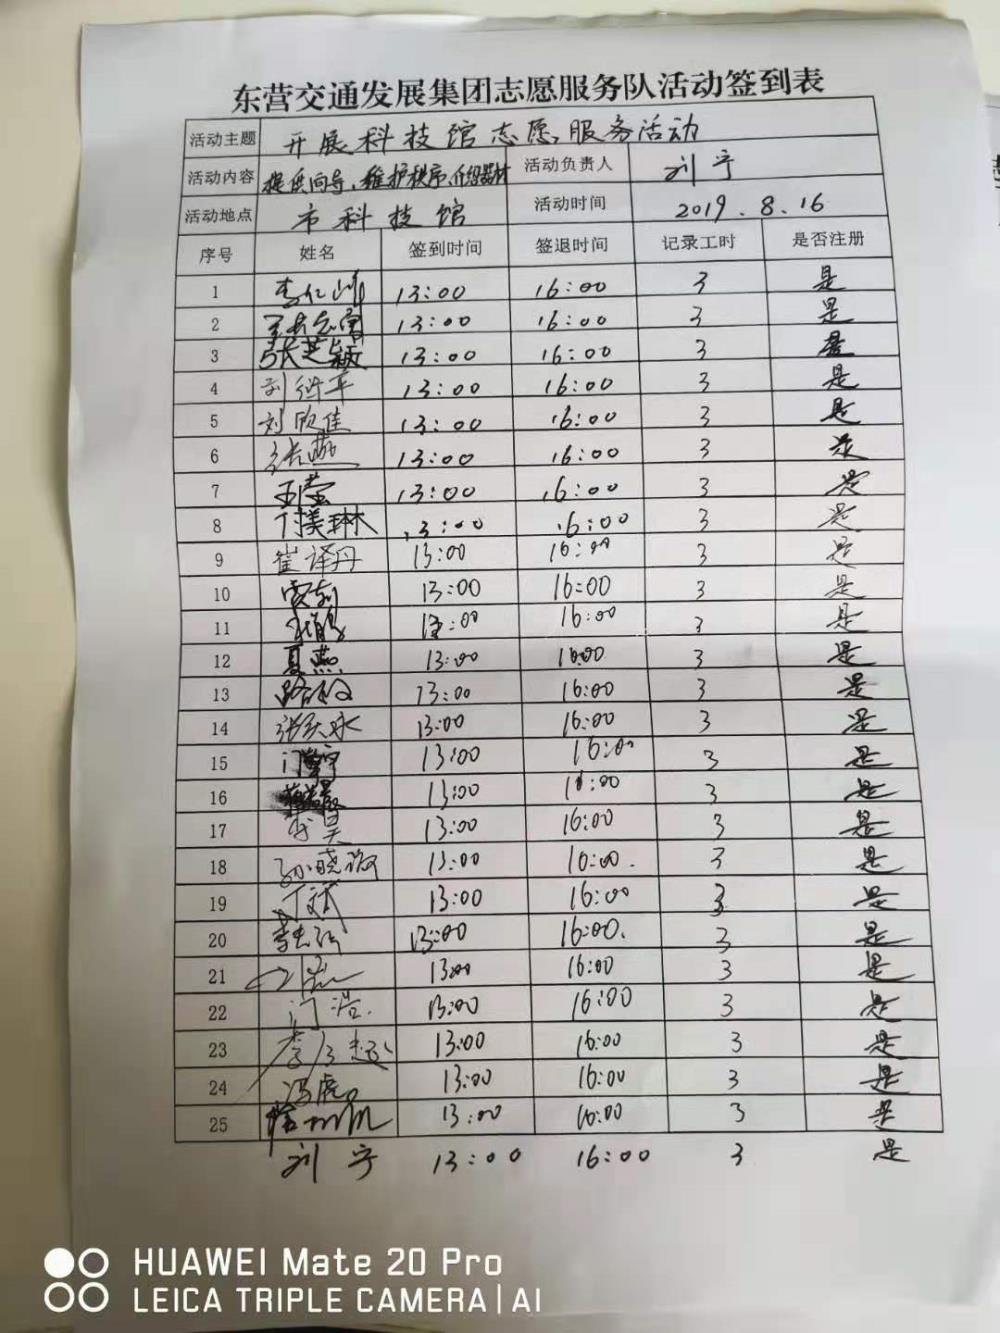 东营交通发展集团志愿服务队活动签到表
活动主题 开展科技馆志愿服务活动
活动内容 提供向导、维护秩序、介绍器材 活动负责人 刘宁
活动地点 市科技馆 活动时间 2019.8.16
序号 姓名 签到时间 签退时间 记录工时 是否注册
1 13:00 16:00 3 是
2 13:00 16:00 3 是
3 张芝颖 13:00 16:00 3 是
4 13:00 16:00 3 是
5 刘欣佳 13:00 16:00 3 是
6 张燕 13:00 16:00 3 是
7 王莹 13:00 16:00 3 是
8 丁美琳 13:00 16:00 3 是
9 崔译丹 13:00 16:00 3 是
10 13:00 16:00 3 是
11 13:00 16:00 3 是
12 夏燕 13:00 16:00 3 是
13 13:00 16:00 3 是
14 13:00 16:00 3 是
15 13:00 16:00 3 是
16 13:00 16:00 3 是
17 13:00 16:00 3 是
18 13:00 16:00 3 是
19 丁斌 13:00 16:00 3 是
20 13:00 16:00 3 是
21 13:00 16:00 3 是
22 门浩 13:00 16:00 3 是
23 13:00 16:00 3 是
24 冯虎 13:00 16:00 3 是
25 13:00 16:00 3 是
刘宁 13:00 16:00 3 是
HUAWEI Mate 20 Pro
LEICA TRIPLE CAMERA | AI